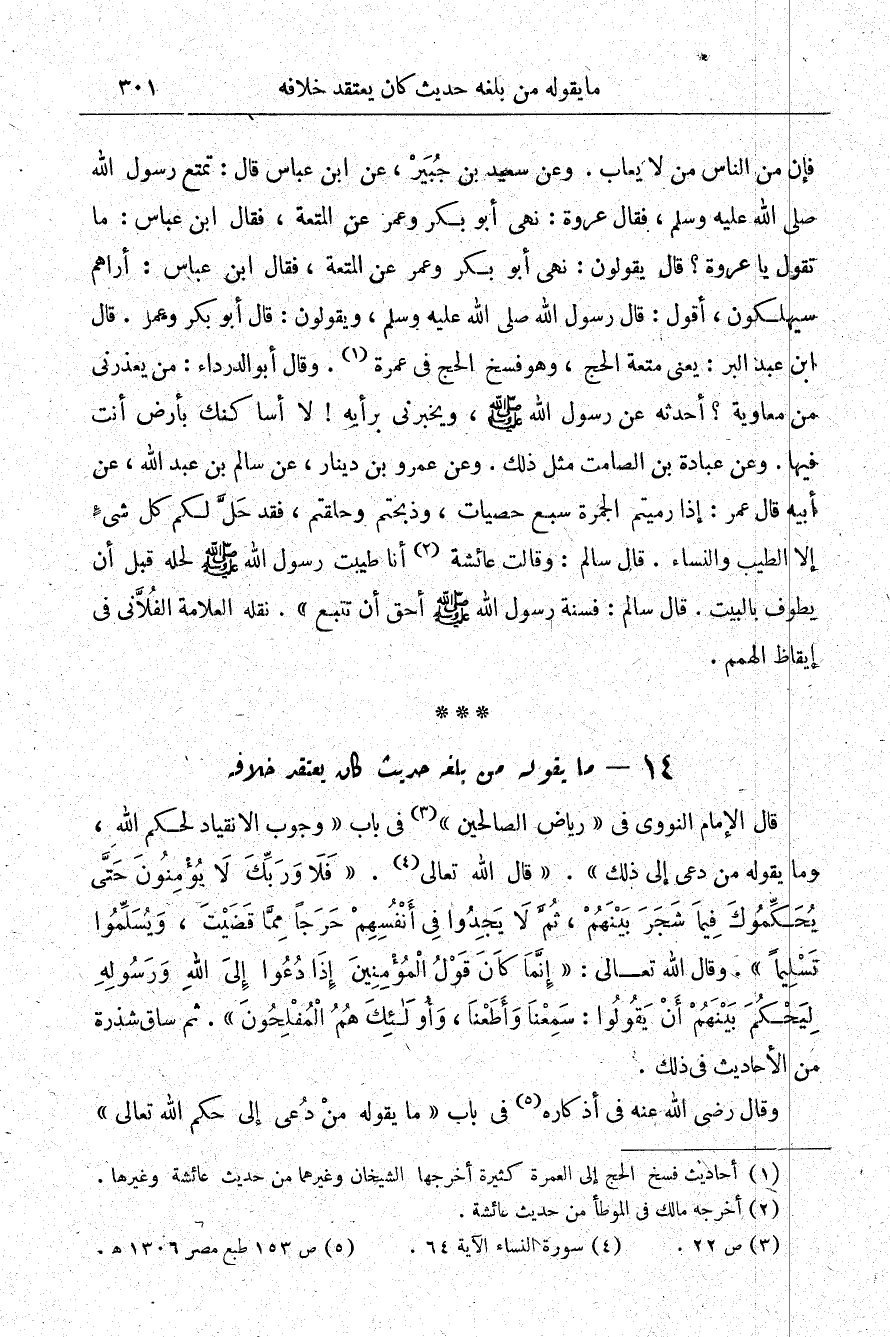 ما يقوله من بلغه حديث كان يعتقد خلافه ٣٠١
فإن من الناس من لا يعاب . وعن سعيد بن جُبَيْر ، عن ابن عباس قال : تمتع رسول الله
صلى الله عليه وسلم ، فقال عروة : نهى أبو بكر وعمر عن المتعة ، فقال ابن عباس : ما
تقول يا عروة ؟ قال يقولون : نهى أبو بكر وعمر عن المتعة ، فقال ابن عباس : أراهم
سيهلكون ، أقول : قال رسول الله صلى الله عليه وسلم ، ويقولون : قال أبو بكر وعمر . قال
ابن عبد البر : يعنى متعة الحج ، وهو فسخ الحج فى عمرة (١) . وقال أبو الدرداء : من يعذرنى
من معاوية ؟ أحدثه عن رسول الله ﷺ ، ويخبرنى برأيه ! لا أساكنك بأرض أنت
فيها . وعن عبادة بن الصامت مثل ذلك . وعن عمرو بن دينار ، عن سالم بن عبد الله ، عن
أبيه قال عمر : إذا رميتم الجمرة سبع حصيات ، وذبحتم وحلقتم ، فقد حَلَّ لكم كل شىء
إلا الطيب والنساء . قال سالم : وقالت عائشة (٢) أنا طيبت رسول الله ﷺ لحله قبل أن
يطوف بالبيت . قال سالم : فسنة رسول الله ﷺ أحق أن تتبع » . نقله العلامة الفُلاَّنى فى
إيقاظ الهمم .
* * *
١٤ — ما يقوله من بلغه حديث كان يعتقد خلافه
قال الإمام النووى فى « رياض الصالحين »(٣) فى باب « وجوب الانقياد لحكم الله ،
وما يقوله من دعى إلى ذلك » . « قال الله تعالى(٤) . « فَلَا وَرَبِّكَ لَا يُؤْمِنُونَ حَتَّى
يُحَكِّمُوكَ فِيمَا شَجَرَ بَيْنَهُمْ ، ثُمَّ لَا يَجِدُوا فِى أَنْفُسِهِمْ حَرَجاً مِمَّا قَضَيْتَ ، وَيُسَلِّمُوا
تَسْلِيماً » . وقال الله تعالى : « إِنَّمَا كَانَ قَوْلُ الْمُؤْمِنِينَ إِذَا دُعُوا إِلَى اللهِ وَرَسُولِهِ
لِيَحْكُمَ بَيْنَهُمْ أَنْ يَقُولُوا : سَمِعْنَا وَأَطَعْنَا ، وَأُولَٰئِكَ هُمُ الْمُفْلِحُونَ » . ثم ساق شذرة
من الأحاديث فى ذلك .
وقال رضى الله عنه فى أذكاره(٥) فى باب « ما يقوله منْ دُعى إلى حكم الله تعالى »
(١) أحاديث فسخ الحج إلى العمرة كثيرة أخرجها الشيخان وغيرهما من حديث عائشة وغيرها .
(٢) أخرجه مالك فى الموطأ من حديث عائشة .
(٣) ص ٢٢ . (٤) سورة النساء الآية ٦٤ . (٥) ص ١٥٣ طبع مصر ١٣٠٦ ه .